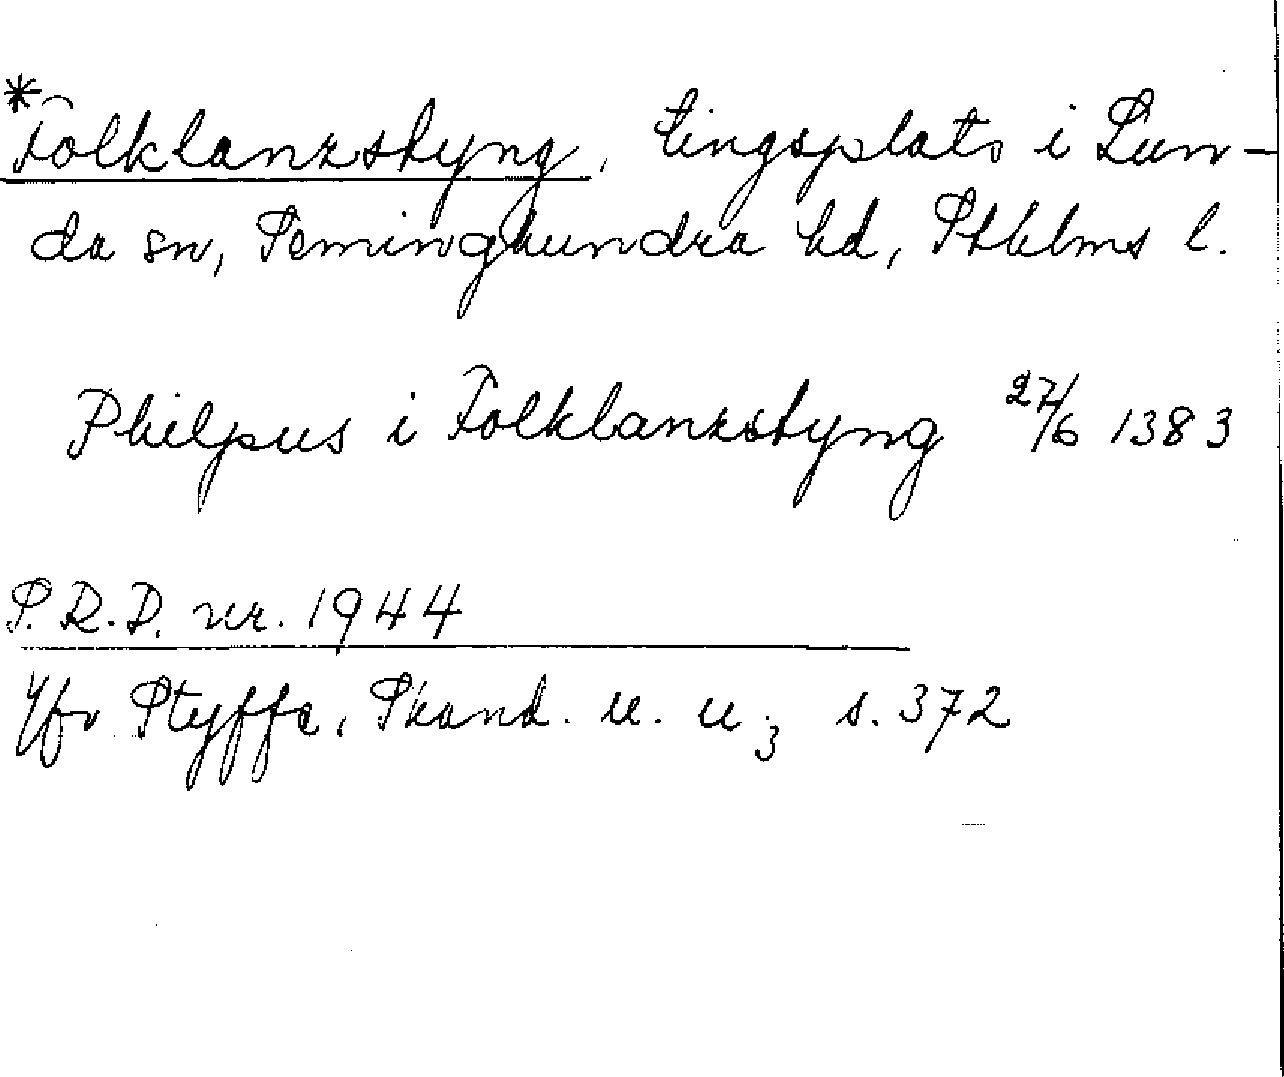 *Folklanzstyng, tingsplats i Lun-
da sn, Seminghundra hd, Sthlms l.
Philpus i Folklanzstyng 27/6 1383
S.R.D. nr. 1944
Jfr Styffe, Skand. u. u₃ s. 372